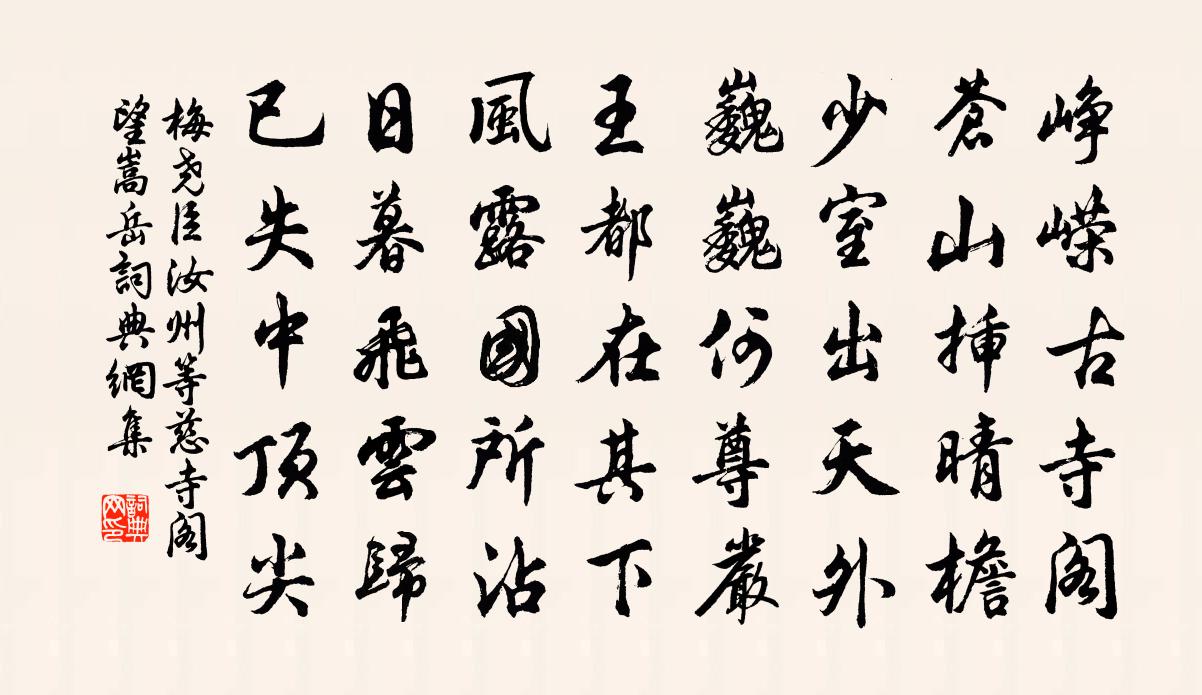 崢嶸古寺阁
蒼山插晴檐
少室出天外
巍巍何尊嚴
王都在其下
風露國所沾
日暮飛雲歸
已失中顶尖
梅尧臣汝州等慈寺阁
望嵩岳詞典網集
詞典
网印